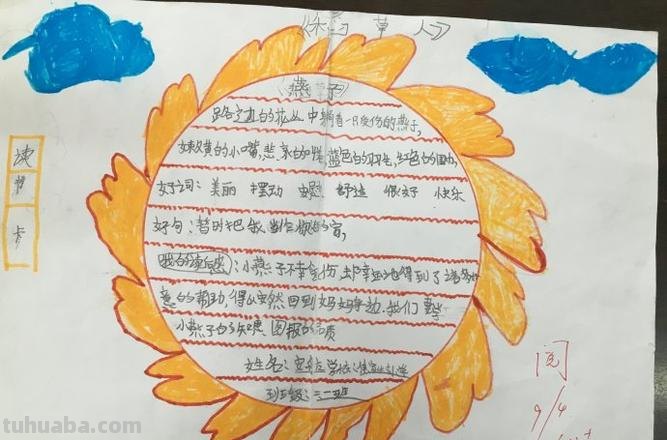 《稻草人》
《燕子》
路旁边的花丛中躺着一只受伤的燕子,
嫩黄的小嘴,悲哀的 蓝色的羽毛,白色的
好词: 美丽 摆动 舒适 很好 快乐
好句: 暂时把我当作你的
我的读后感: 小燕子不幸受伤,却幸运地得到了
的帮助,得以安然回到妈妈身边,我们要学
小燕子的 图报的品质
姓名: 学校:
班级: 三二班
读书卡
阅
9/4
tuhuaba.com